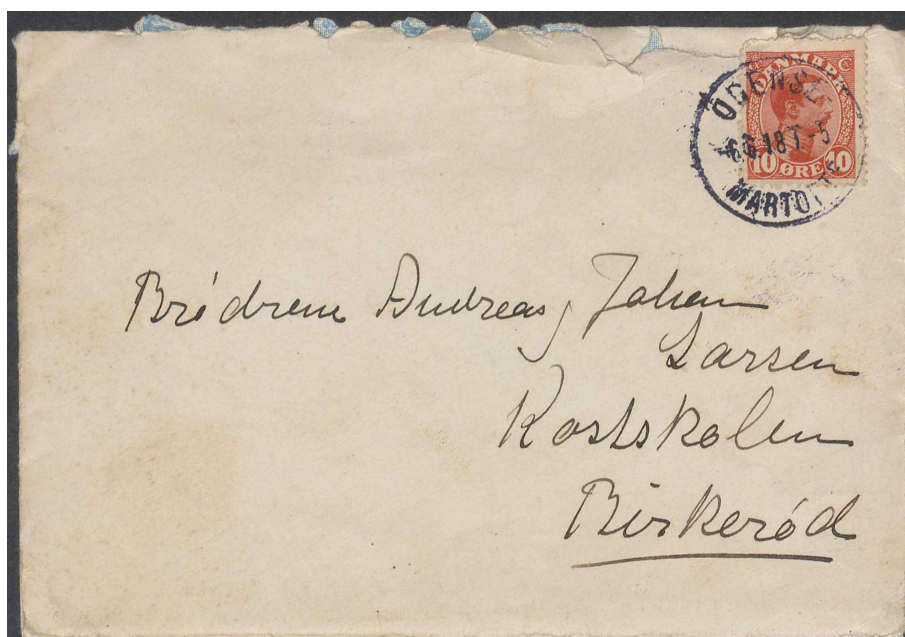 DANMARK
10 ØRE 10
ODENSE
MARTOFTE
Brödrene Andreas, Johan
Larsen
Kostskolen
Birkeröd